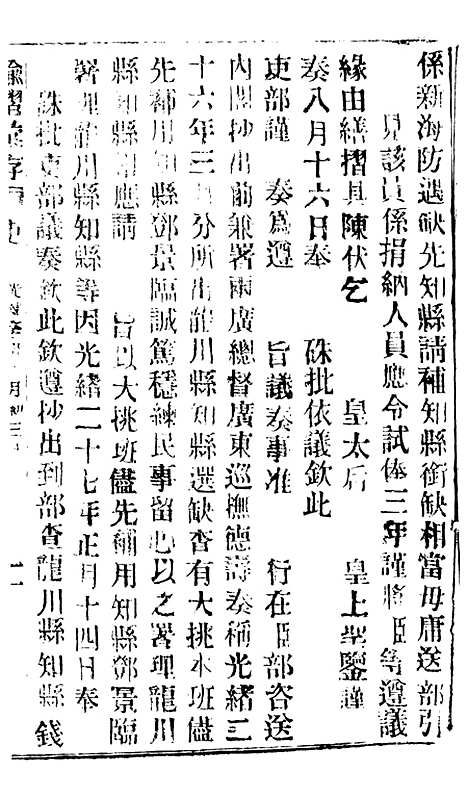 係新海防遇缺先知縣請補知縣銜缺相當毋庸送 部引
見該員係捐納人員應令試俸三年謹將臣等遵議
緣由繕摺具陳伏乞 皇太后 皇上聖鑒謹
奏八月十六日奉 硃批依議欽此
吏部謹 奏爲遵 旨議奏事准 行在臣部咨送
內閣抄出前兼署兩廣總督廣東巡撫德壽奏稱光緒二
十六年三月分所出龍川縣知縣選缺查有大挑本班儘
先補用知縣鄧景臨誠篤穩練民事留心以之署理龍川
縣知縣 應請 旨以大挑班儘先補用知縣鄧景臨
署理龍川縣知縣等因光緒二十七年正月十四日奉
硃批吏部議奏欽此欽遵抄出到部查龍川縣知縣 錢
諭摺彙存 光緒 月初三 十一